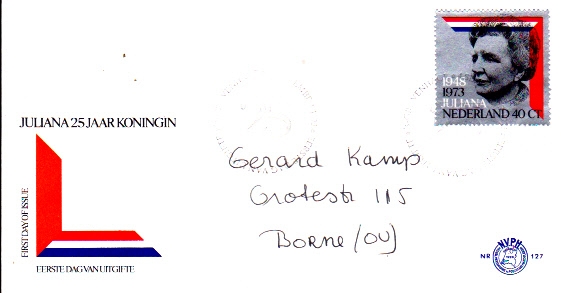 1948
1973
JULIANA
NEDERLAND 40 CT
JULIANA 25 JAAR KONINGIN
Gerard Kamp
Grotestr 115
Borne/(OV)
FIRST DAY OF ISSUE
EERSTE DAG VAN UITGIFTE
NR
NVPH
127